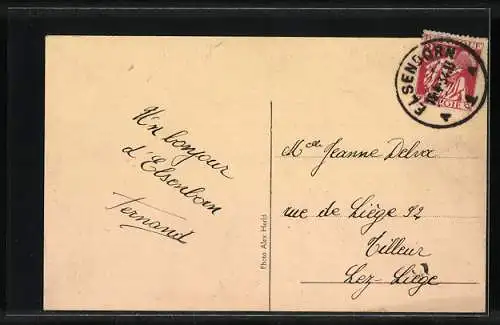 ELSENBORN
BELGIE
U'n bonjour
d'Elsenborn
Fernand
Photo Alex Herld
Melle Jeanne Delvx
rue de Liège 92
Tilleur
Lez-Liège